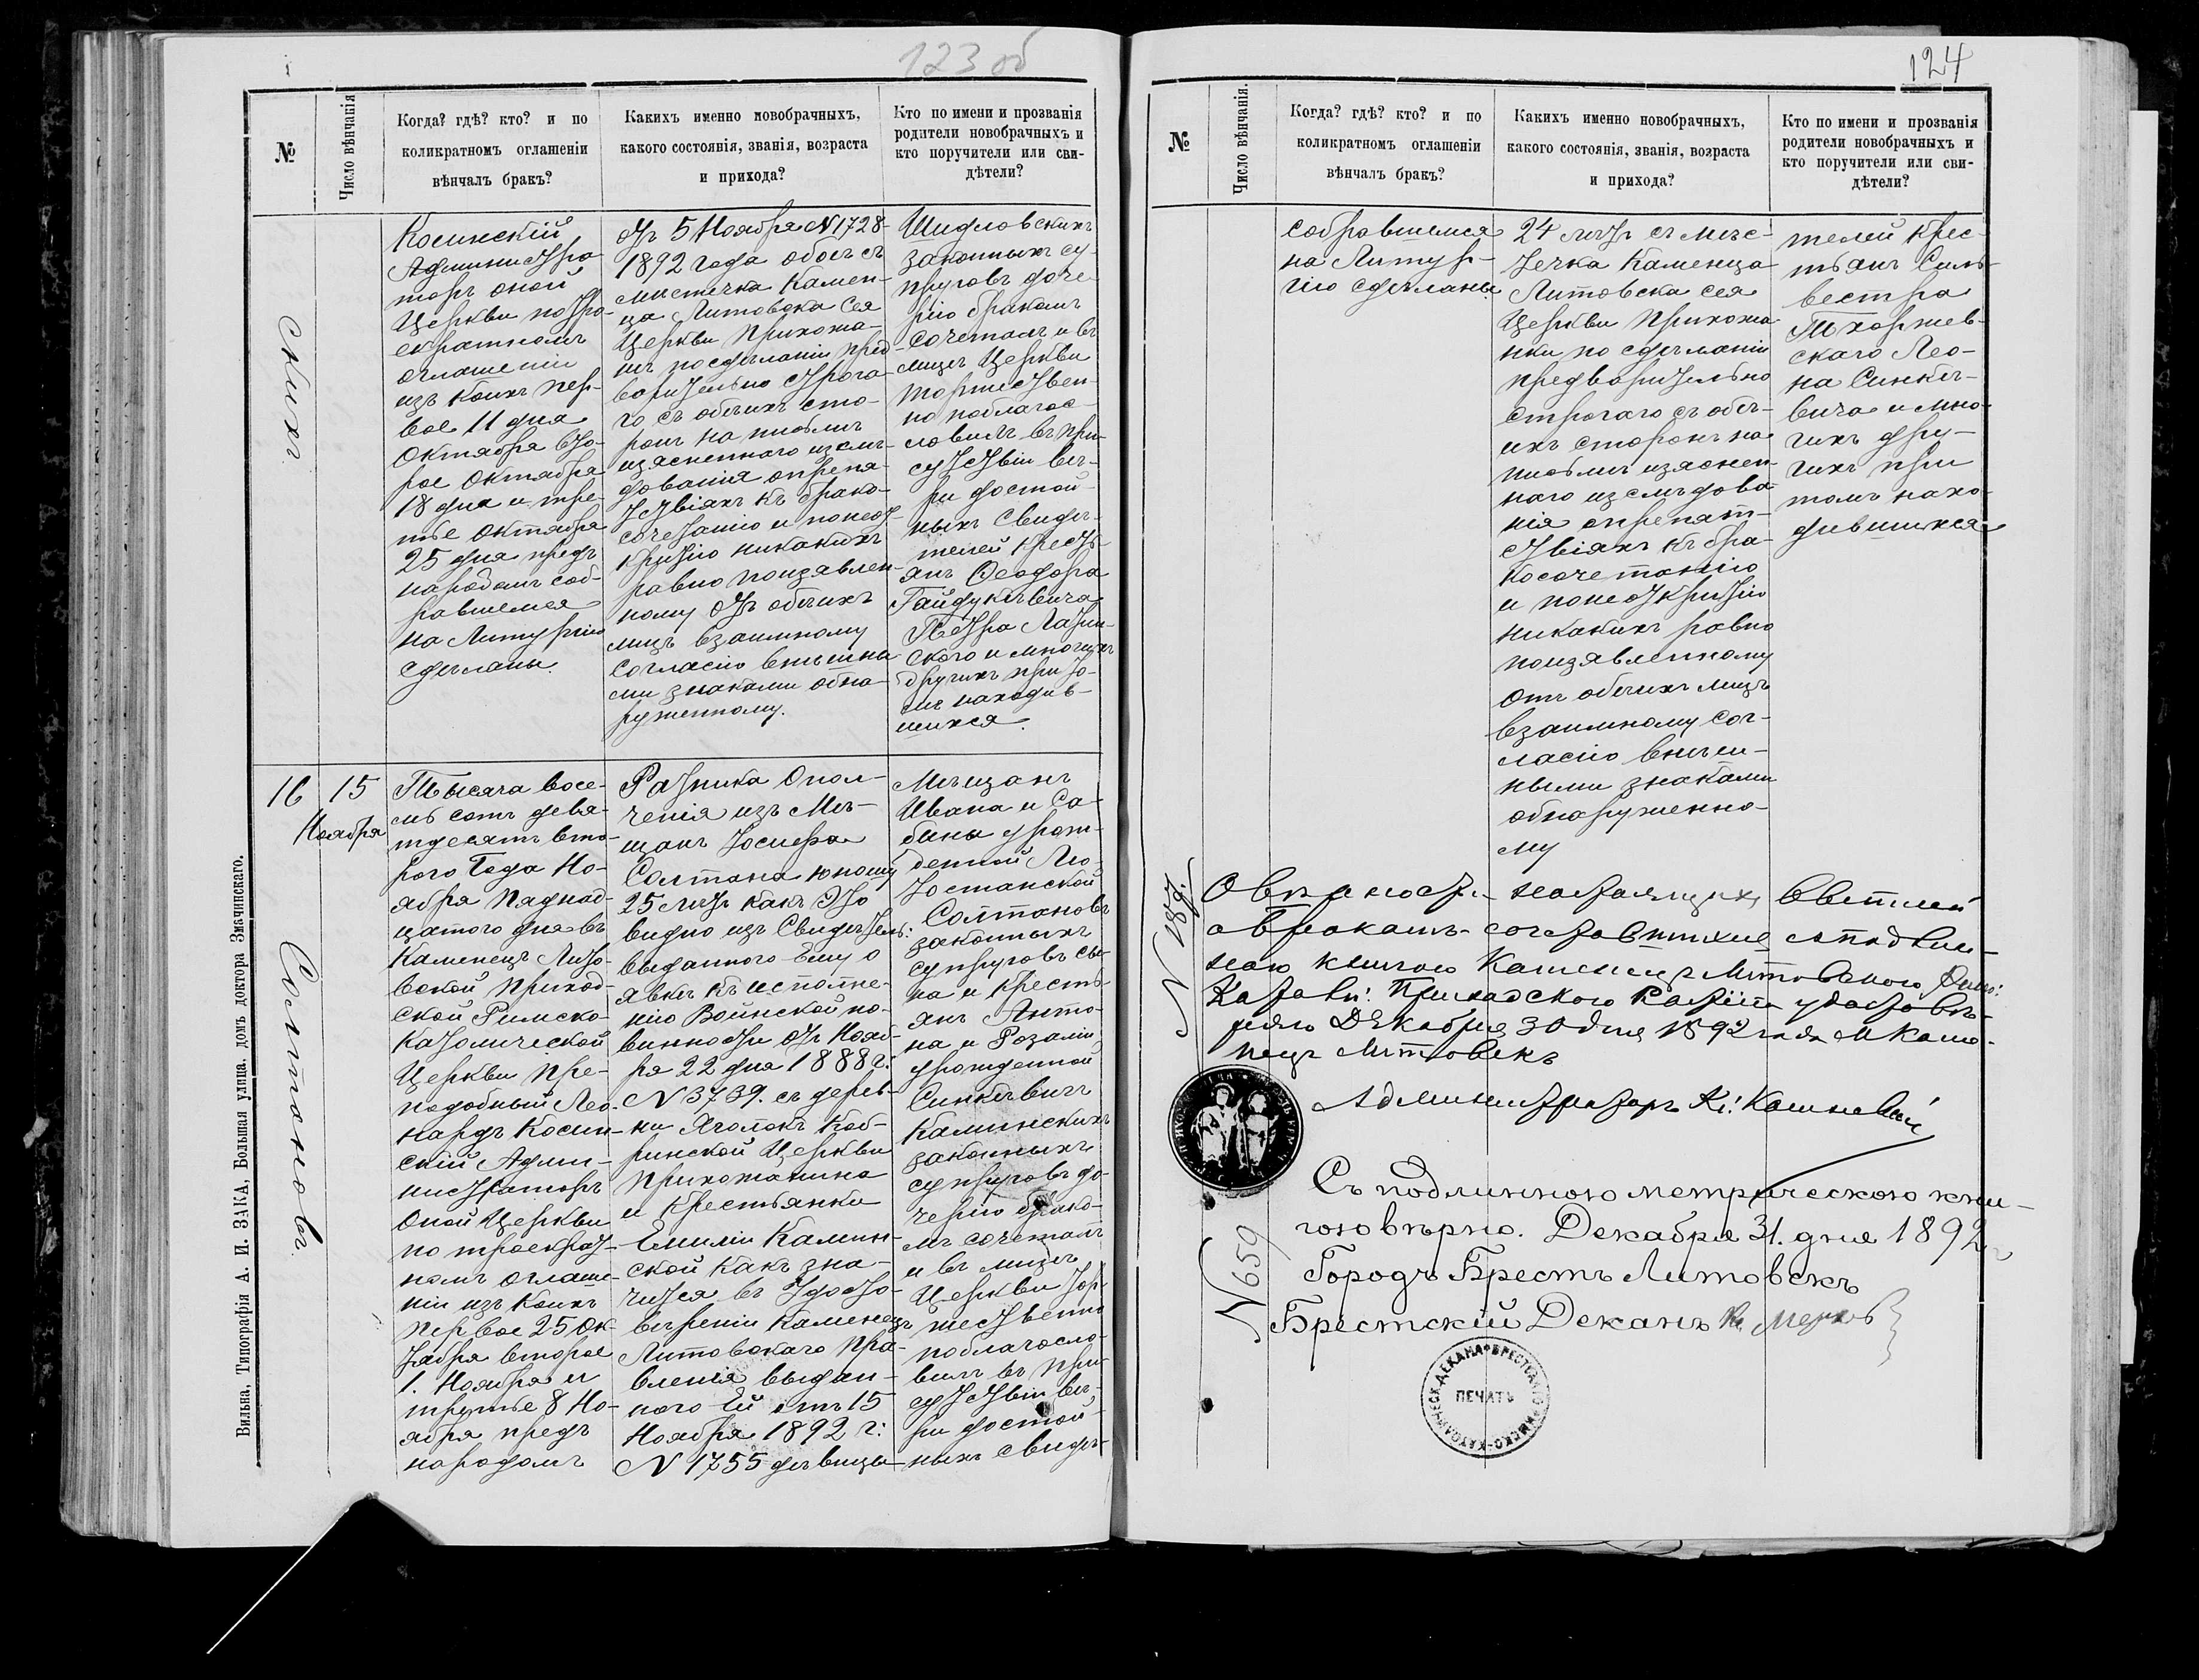 123 об
№
Число вѣнчанія
Когда? гдѣ? кто? и по
коликратномъ оглашеніи
вѣнчалъ бракъ?
Какихъ именно новобрачныхъ,
какого состоянія, званія, возраста
и прихода?
Кто по имени и прозванія
родители новобрачныхъ и
кто поручители или сви-
дѣтели?
Косинскій
Администра
торъ оной
Церкви по тро-
екратномъ
оглашеніи
изъ коихъ пер-
вое 11 дня
Октября вто-
рое Октября
18 дня и тре-
тье Октября
25 дня предъ
народомъ соб-
равшемся
на Литургію
сдѣланы.
отъ 5 Ноября N 1728
1892 года обоихъ съ
мѣстечка Камен-
ца Литовска сея
Церкви Прихожа-
нъ по сдѣланіи пред
варительно строга-
го съ обѣихъ сто-
ронъ на письмѣ
изясненнаго изслѣ-
дованія опрепя-
тствіяхъ къ брако-
сочетанію и понеот-
крытію никакихъ
равно поизявлен-
ному отъ обѣихъ
лицъ взаимному
согласію внѣшны
ми знаками обна-
руженному.
Шидловскихъ
законныхъ су-
пруговъ доче-
рію бракомъ
сочеталъ и въ
лицѣ Церкви
торжествен-
но поблагос-
ловилъ въ при-
сутствіи вѣ-
ры достой-
ныхъ Свидѣ-
телей кресть-
янъ Ѳеодора
Гайдукевича
Петра Лазин-
ского и многихъ
другихъ при то-
мъ находив-
шихся.
16
15
Ноября
Солтановъ
Тысяча восе-
мь сотъ девя-
тдесятъ вто-
рого Года Но-
ября Пятнад-
цатого дня въ
Каменецъ Лито-
вской приход-
ской Римско-
Католической
Церкви пре-
подобный Лео-
нардъ Косин-
скій Адми-
нистраторъ
Оной Церкви
по троекрат-
номъ оглаше-
ніи изъ коихъ
первое 25 Ок-
тября второе
1. Ноября и
третье 8 Но-
ября предъ
народомъ
Ратника Опол-
ченія изъ Мѣ-
щанъ Іосифа
Солтана юношу
25 лѣтъ какъ Это
видно изъ Свидѣтель:
выданного Ему о
явкѣ къ исполне-
нію Воинской по-
винности отъ Нояб-
ря 22 дня 1888 г:
N 3739. съ дерев-
ни Яголокъ Коб-
ринской Церкви
Прихожанина
и крестьянки
Емиліи Камин-
ской какъ зна-
чится въ Удосто-
вѣреніи Каменецъ
Литовскаго Пра-
вленія выдан-
ного Ей отъ 15
Ноября 1892 г:
N 1755 дѣвицы
Мѣщанъ
Ивана и Са-
бины урож-
денной
Солтановъ
законныхъ
супруговъ сы-
на и кресть-
янъ Анто-
на и Розаліи
урожденной
Синкевичъ
Каминскихъ
законныхъ
супруговъ до-
черію брако-
мъ сочеталъ
и въ лицѣ
Церкви тор-
жественно
поблагосло-
вилъ въ при-
сутствіи вѣ-
ры достой-
ныхъ свидѣ-
Вильна. Типографія А. И. ЗАКА, Большая улица. домъ доктора Змачинскаго.
124
№
Число вѣнчанія.
Когда? гдѣ? кто? и по
коликратномъ оглашеніи
вѣнчалъ бракъ?
Какихъ именно новобрачныхъ,
какого состоянія, званія, возраста
и прихода?
Кто по имени и прозванія
родители новобрачныхъ и
кто поручители или сви-
дѣтели?
собравшемся
на Литур-
гію сдѣланы.
24 лѣтъ съ мѣс-
течка Каменца
Литовска сея
Церкви Прихожа
нки по сдѣланіи
предварительно
строгаго съ обѣ-
ихъ сторонъ на
письмѣ изяснен-
наго изслѣдова-
нія опрепят-
ствіяхъ къ бра-
косочетанію
и понеоткрытію
никакихъ равно
поизявленному
отъ обѣихъ лицъ
взаимному сог-
ласію внѣш-
ными знаками
обнаруженно-
му
телей крес-
тьянъ Силь-
вестра
Тхоржев-
скаго Лео-
на Синке-
вича и мно-
гихъ дру-
гихъ при
томъ нахо-
дившихся
N 187.
О вѣрности настоящихъ
о бракомъ сочетавшихся съ подлин-
ною книгою Каменецъ Литовского Римс:
Католи: Приходского Костела удостовѣ-
ряю Декабря 30 дня 1892 года М Каме-
нецъ Литовскъ
Администраторъ К: Косинскій
Съ подлинною метрическою кни-
гою вѣрно. Декабря 31. дня 1892 г
Городъ Брестъ Литовскъ
Брестскій Деканъ К.
N 659
ПЕЧАТЬ